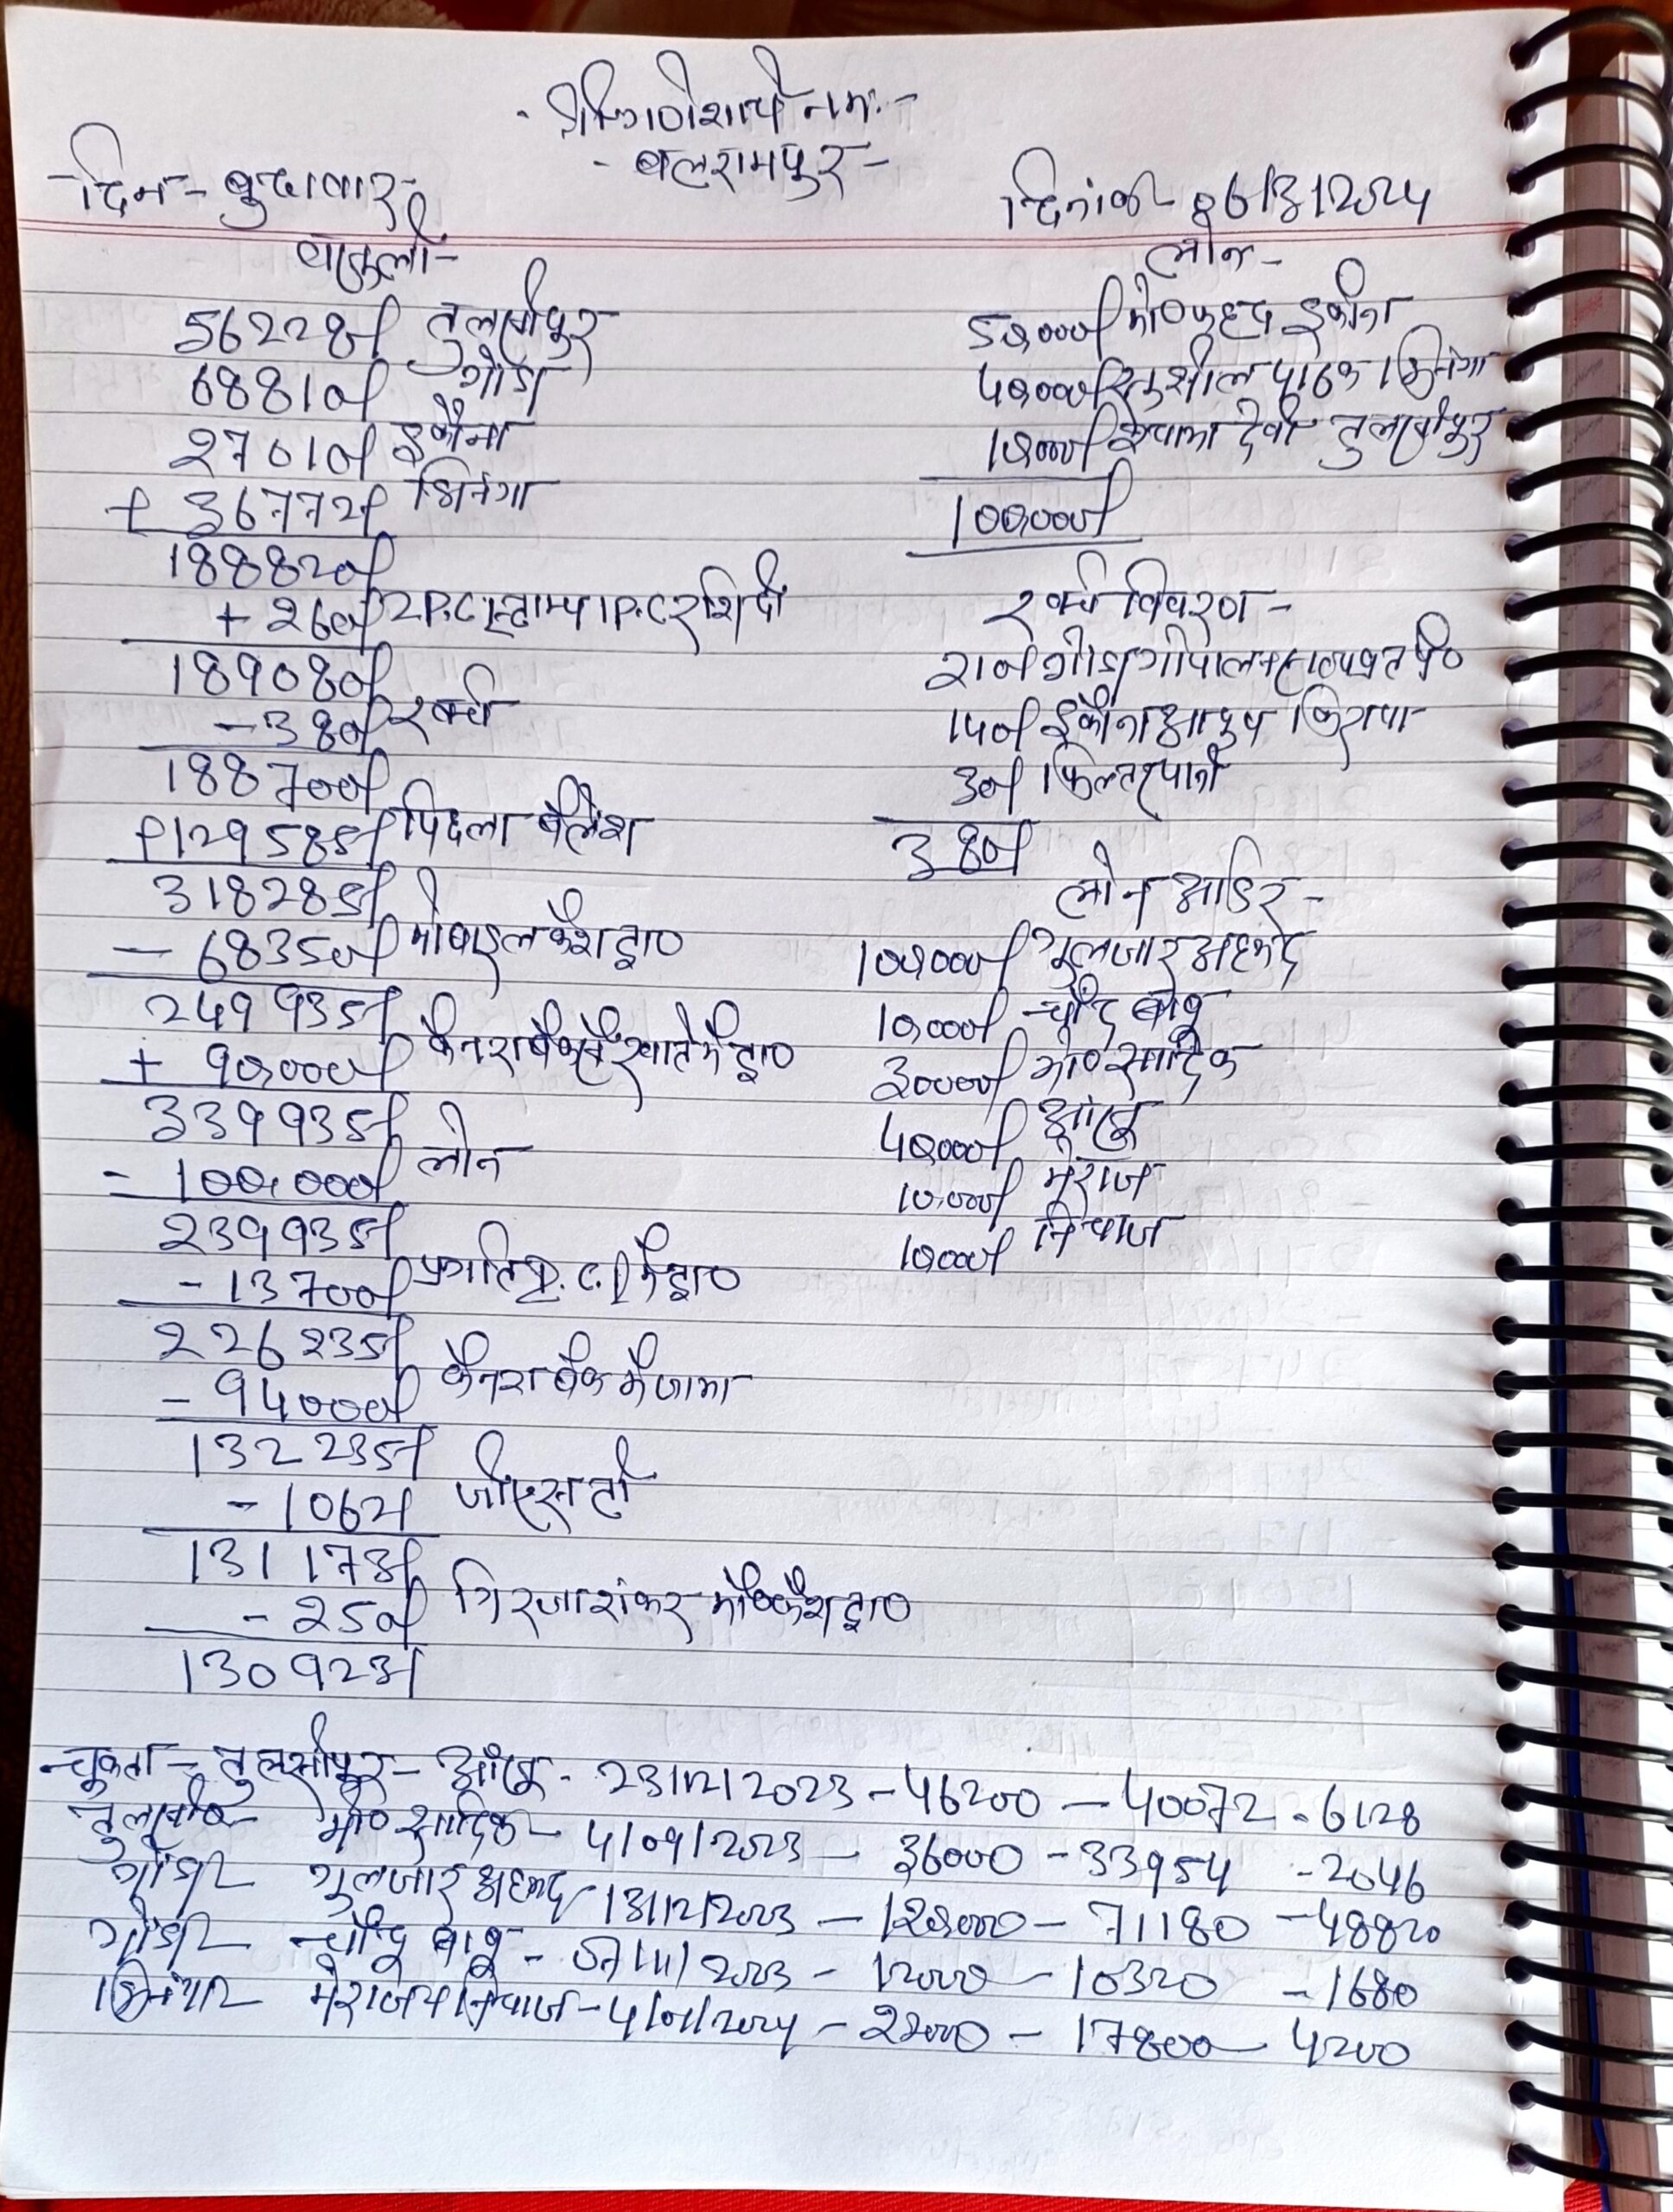 श्री गणेशाय नमः-
- बलरामपुर -
दिन - बुधवार
दिनांक - 06/03/2024
वसूली -
56228/ तुलसीपुर
68810/ गोंडा
27010/ इकौना
+ 36772/ भिनगा
188820/
+ 260/ 2P.C स्टाम्प 1P.C रशिदी
189080/
- 380/ खर्च
188700/
+129585/ पिछला बैलेंश
318285/
- 68350/ मोबाइल कैश द्वा०
249935/
+ 90,000/ कैनरा बैंक के खाते में द्वा०
339935/ लोन
- 100,000/
239935/
- 13700/ प्रगति P.C. में द्वा०
226235/
- 94000/ कैनरा बैंक में जमा
132235/
- 1062/ जीएसटी
131173/
- 250/ गिरजाशंकर मो० कैश द्वा०
130923/
लोन -
50,000/ मो० फहद इकौना
40,000/ सुशील पाठक भिनगा
10,000/ देवी तुलसीपुर
100,000/
खर्च विवरण -
200/ गोंडा गोपाल
150/ इकौना आफिस किराया
30/ फिल्टर पानी
380/
लोन आर्डर -
100,000/ गुलजार अहमद
10,000/ चाँद बाबू
30000/ मो० सादिक
40,000/
10,000/ मेराज
10,000/ नियाज
चुकता - तुलसीपुर - 23/12/2023 - 46200 - 40072 - 6128
तुलसी० - मो० सादिक - 4/09/2023 - 36000 - 33954 - 2046
गोंडा - गुलजार अहमद - 13/12/2023 - 120000 - 71180 - 48820
गोंडा - चाँद बाबू - 07/11/2023 - 12000 - 10320 - 1680
भिनगा - मेराज व नियाज - 4/01/2024 - 22000 - 17800 - 4200